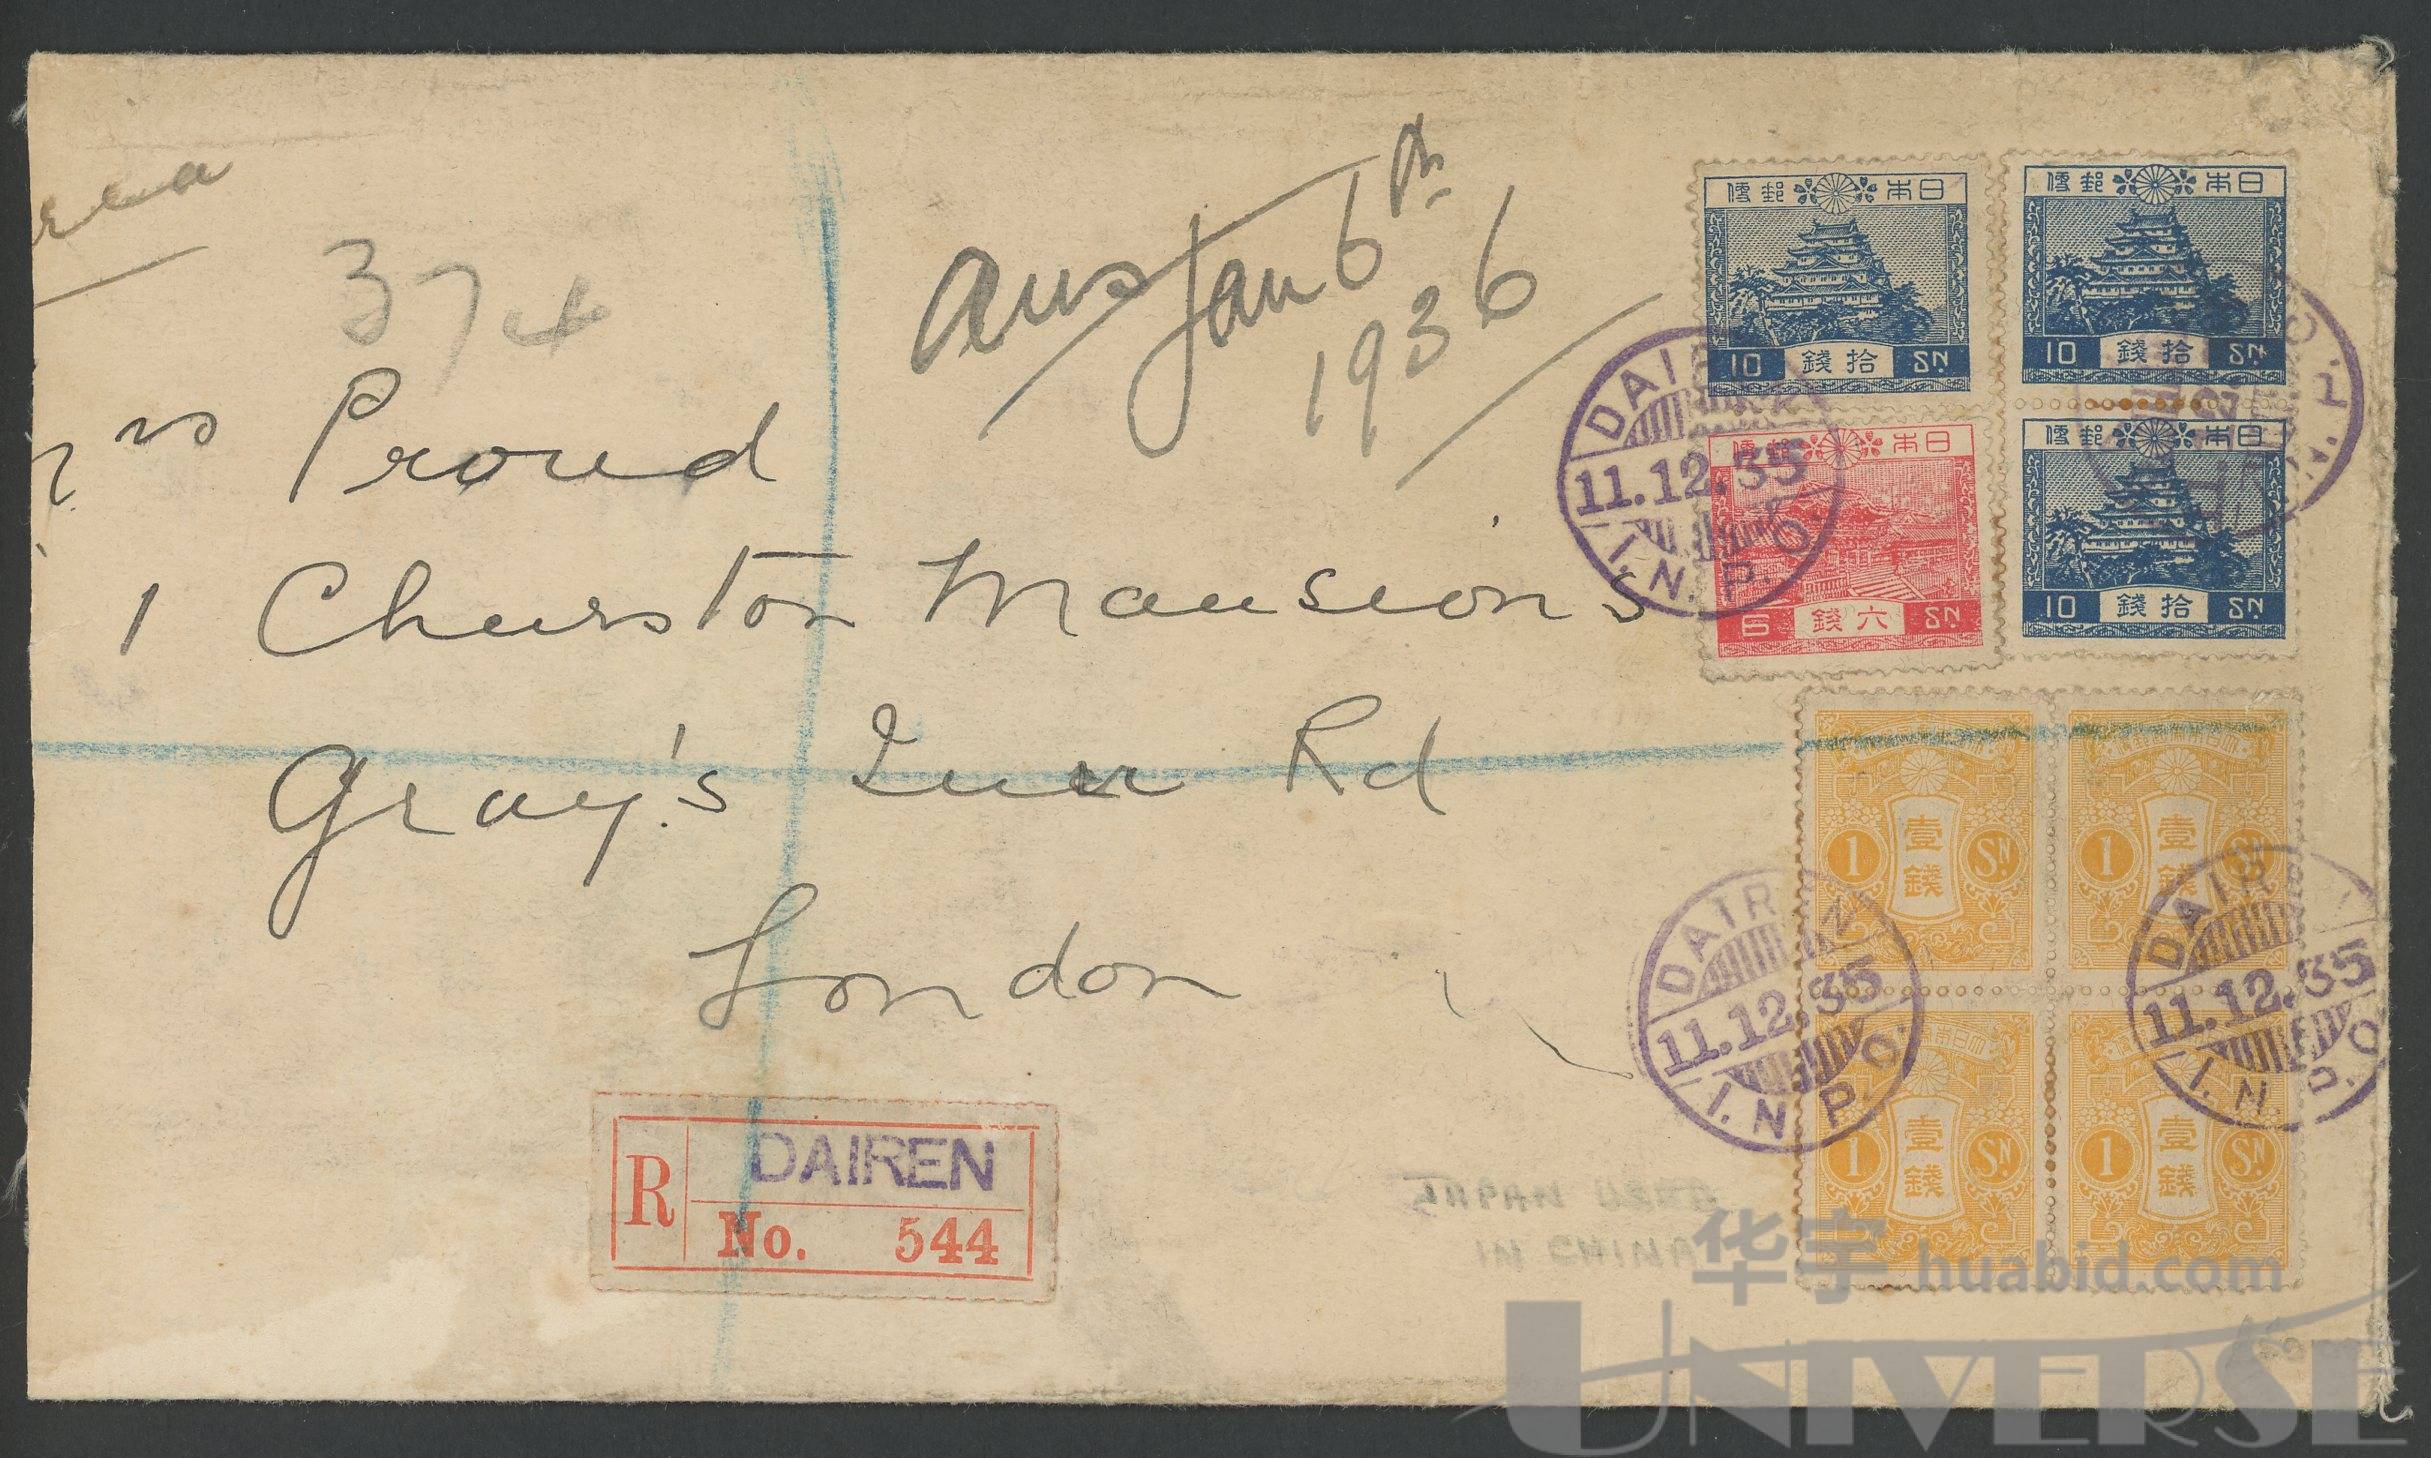 rea
374
ans Jan 6th
1936
Proud
1 Churston Mansions
Gray's Inn Rd
London
R DAIREN
No. 544
日本郵便
10 拾錢 Sn.
日本郵便
10 拾錢 Sn.
日本郵便
6 六錢 Sn.
日本郵便
10 拾錢 Sn.
DAIREN
11.12.35
I.N.P.O.
1 壹錢 Sn.
1 壹錢 Sn.
1 壹錢 Sn.
1 壹錢 Sn.
DAIREN
11.12.35
I.N.P.O.
DAIR
11.12.35
I.N.P.O.
JAPAN USED
IN CHINA
华宇 huabid.com
UNIVERSE